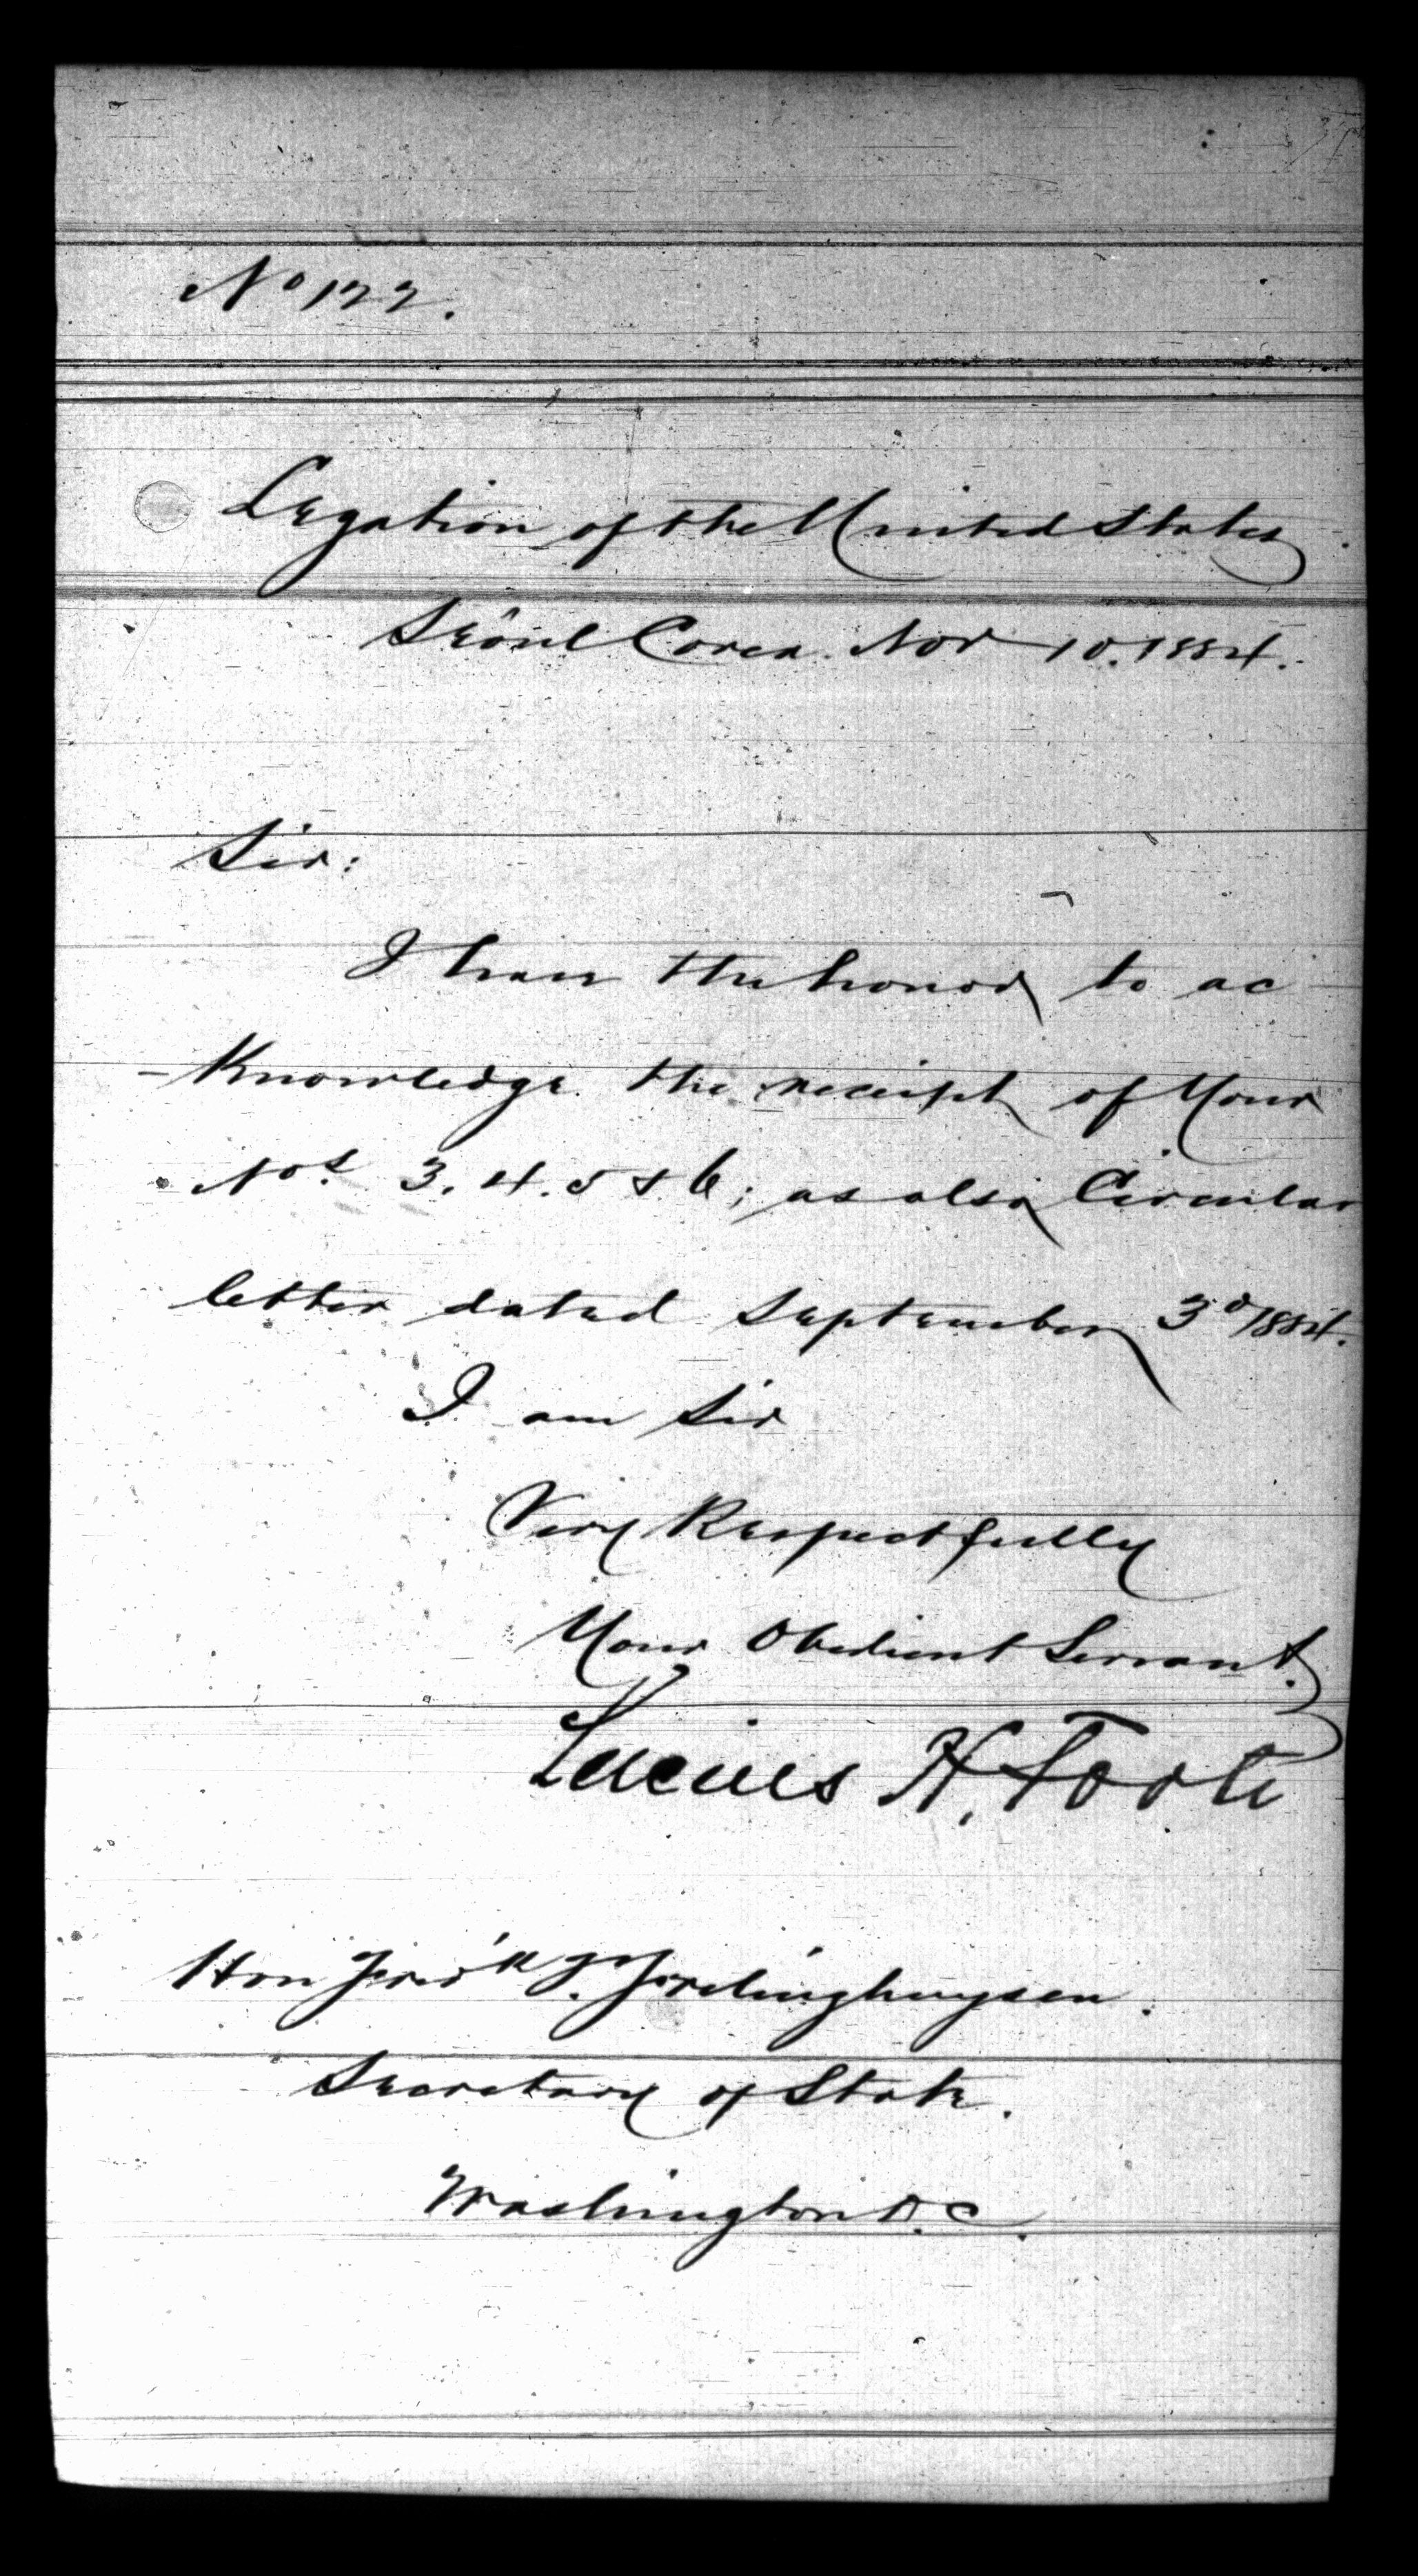 No 122.
Legation of the United States.
Seôul Corea. Nov 10. 1884.
Sir:
I have the honor to ac
-knowledge the receipt of Your
Nos. 3. 4. 5 & 6; as also Circular
letter dated September 3d 1884.
I am Sir
Very Respectfully
Your Obedient Servant.
Lucius H. Foote
Hon Fred'k T. Frelinghuysen.
Secretary of State.
Washington D. C.